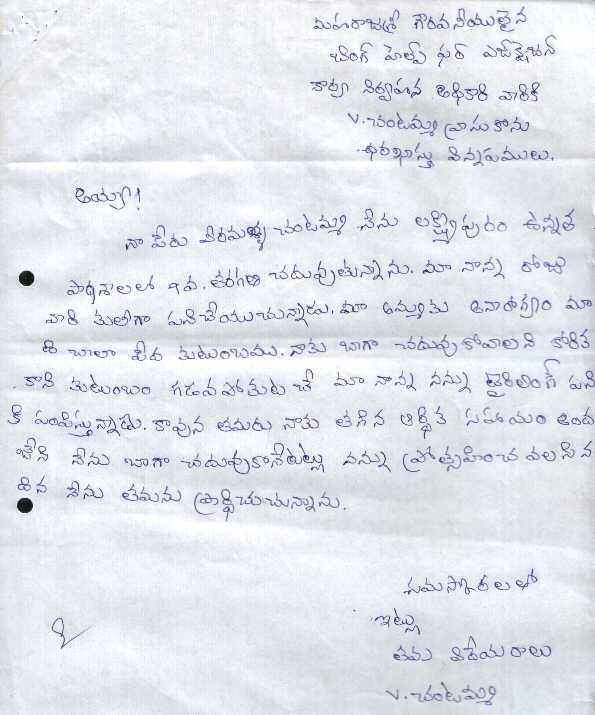 మహరాజశ్రీ గౌరవనీయులైన
బింగ్ హెల్ప్ ఫర్ ఎడ్యుకేషన్
కార్య నిర్వహన అధికారి వారికి
V. చంటమ్మ వ్రాసుకొను
ధరఖాస్తు విన్నపములు.
అయ్యా!
నా పేరు వీరమళ్ళ చంటమ్మ నేను లక్ష్మీపురం ఉన్నత
పాఠశాలలో 9వ. తరగతి చదువుతున్నాను. మా నాన్న రోజు
వారి కులీగా పనిచేయుచున్నాడు. మా అమ్మకు అనారోగ్యం మా
ది చాలా పేద కుటుంబము. నాకు బాగా చదువుకోవాలని కోరిక
కాని కుటుంబం గడవపోకుట చే మా నాన్న నన్ను టైలరింగ్ పని
కి పంపిస్తున్నాడు. కావున తమరు నాకు తగిన ఆర్థిక సహాయం అంద
జేసి నేను బాగా చదువుకొనేటట్లు నన్ను ప్రోత్సహించ వలసిన
దిన నేను తమను ప్రార్థించుచున్నాను.
నమస్కారలతో
ఇట్లు
తమ విదేయరాలు
V. చంటమ్మ